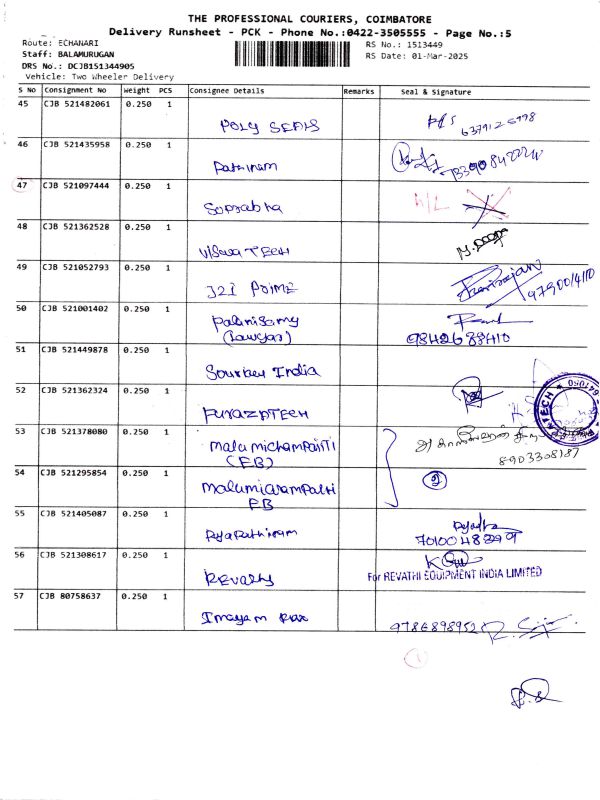 THE PROFESSIONAL COURIERS, COIMBATORE
Delivery Runsheet - PCK - Phone No.:0422-3505555 - Page No.:5
Route: ECHANARI RS No.: 1513449
Staff: BALAMURUGAN RS Date: 01-Mar-2025
DRS No.: DCJB151344905
Vehicle: Two Wheeler Delivery
S No Consignment No Weight PCS Consignee Details Remarks Seal & Signature
45 CJB 521482061 0.250 1
POLY SEALS
46 CJB 521435958 0.250 1
Pathinam
47 CJB 521097444 0.250 1
Soprabha H/L
48 CJB 521362528 0.250 1
Viswa TECH
49 CJB 521052793 0.250 1
J2I PRIME 9790014110
50 CJB 521001402 0.250 1
Palanisamy
(Lawyar) 9842689410
51 CJB 521449878 0.250 1
India
52 CJB 521362324 0.250 1
53 CJB 521378080 0.250 1
(EB) 8903308187
54 CJB 521295854 0.250 1
EB
55 CJB 521405087 0.250 1
7010048299
56 CJB 521308617 0.250 1
REvathy For REVATHI EQUIPMENT INDIA LIMITED
57 CJB 80758637 0.250 1
Imayam
9786898952